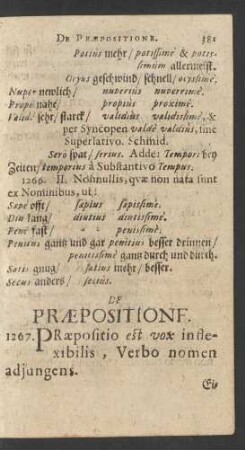 DE PRÆPOSITIONE. 381
Potius mehr/ potissimè & potis-
simùm allermeist.
Ocyus geschwind/ schnell/ ocyssimè.
Nuper newlich/ nuperius nuperrimè.
Propè nahe/ propius proximè.
Validè sehr/ starck/ validius validissimè, &
per Syncopen valdè valdiùs, sine
Superlativo. Schmid.
Serò spat/ serius. Adde: Temperi bey
Zeiten/ temperius à Substantivo Tempus.
1266. II. Nonnullis, quæ non nata sunt
ex Nominibus, ut:
Sæpe offt/ sæpius sæpissimè.
Diu lang/ diutius diutissimè.
Penè fast/ penissimè.
Penitus gantz und gar penitius besser drinnen/
penitissimè gantz durch und durch.
Satis gnug/ satius mehr/ besser.
Secus anders/ secius.
DE
PRÆPOSITIONE.
1267. PRæpositio est vox infle-
xibilis, Verbo nomen
adjungens.